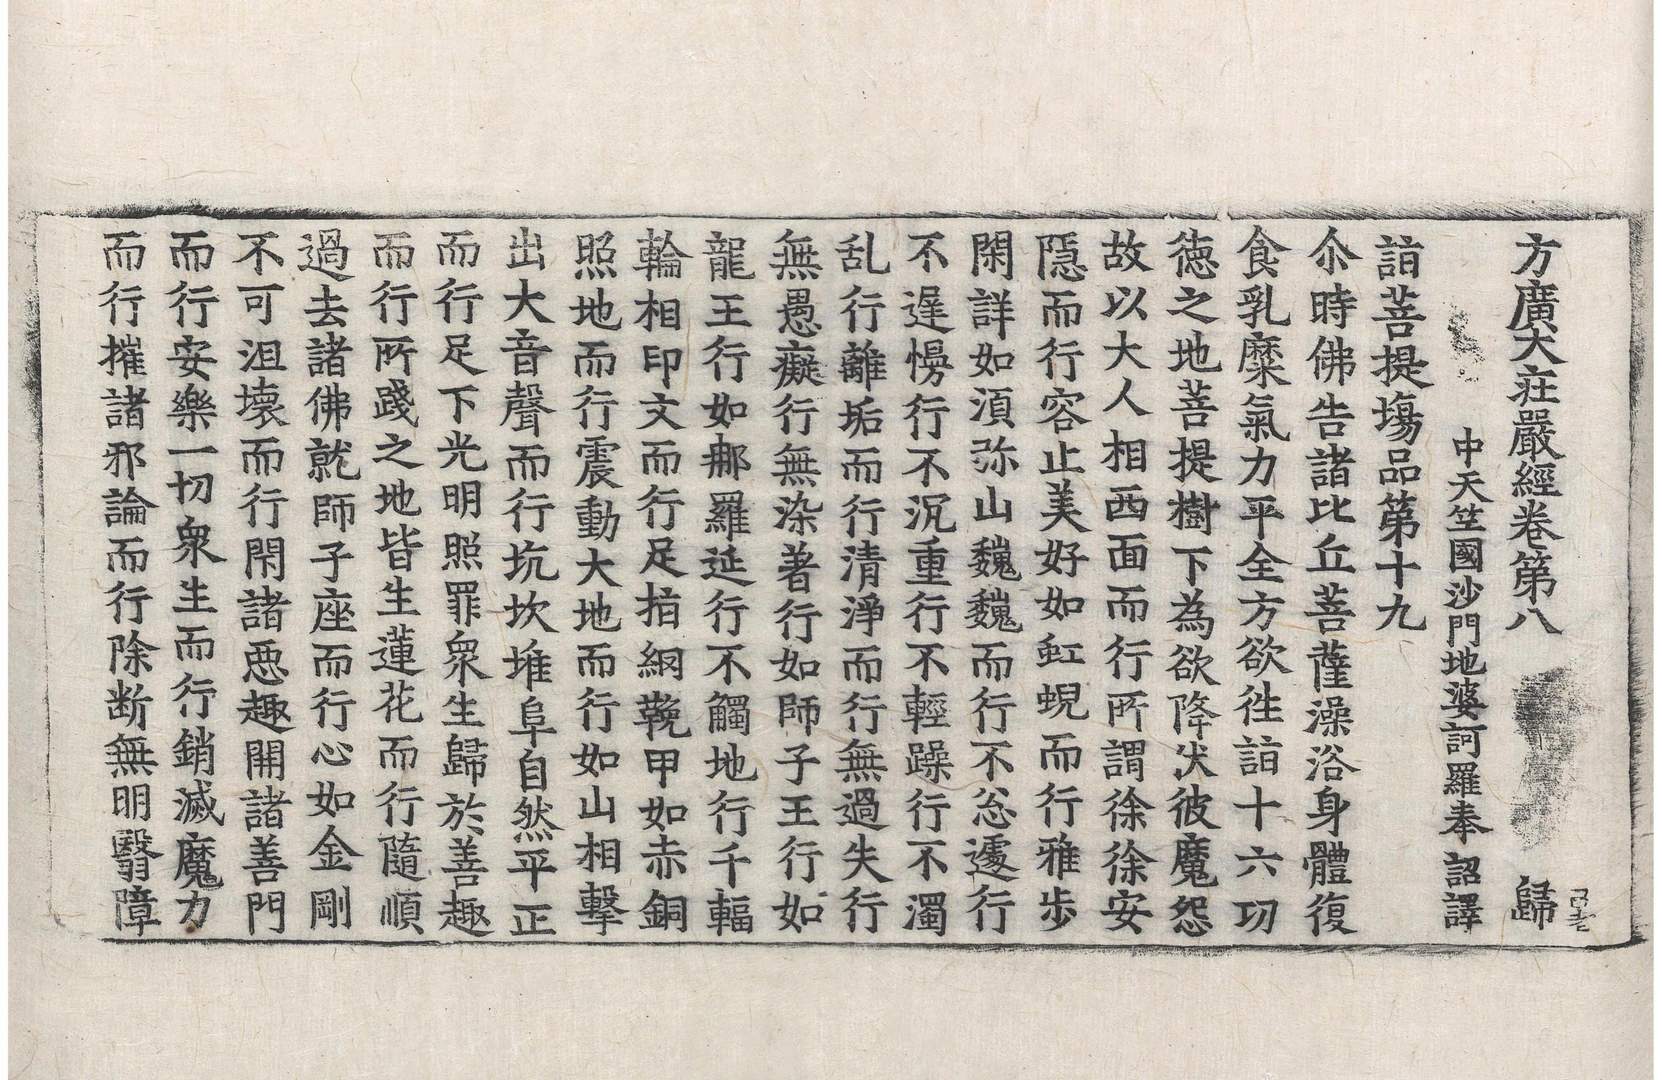 方廣大莊嚴經卷第八 歸
中天竺國沙門地婆訶羅奉 詔譯
詣菩提場品第十九
尒時佛告諸比丘菩薩澡浴身體復
食乳糜氣力平全方欲往詣十六功
德之地菩提樹下為欲降伏彼魔怨
故以大人相西面而行所謂徐徐安
隱而行容止美好如虹蜺而行雅步
閑詳如須弥山巍巍而行不忩遽行
不遲慢行不沉重行不輕躁行不濁
乱行離垢而行清淨而行無過失行
無愚癡行無染著行如師子王行如
龍王行如那羅延行不觸地行千輻
輪相印文而行足指網鞔甲如赤銅
照地而行震動大地而行如山相擊
出大音聲而行坑坎堆阜自然平正
而行足下光明照罪衆生歸於善趣
而行所踐之地皆生蓮花而行隨順
過去諸佛就師子座而行心如金剛
不可沮壞而行閇諸惡趣開諸善門
而行安樂一切衆生而行銷滅魔力
而行摧諸邪論而行除断無明翳障